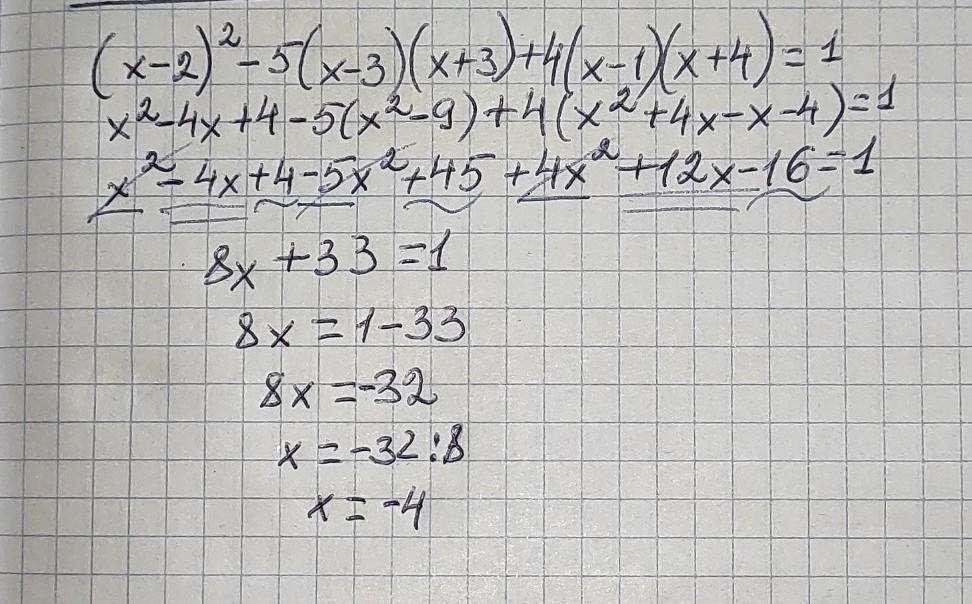 (x-2)²-5(x-3)(x+3)+4(x-1)(x+4)=1
x²-4x+4-5(x²-9)+4(x²+4x-x-4)=1
x²-4x+4-5x²+45+4x²+12x-16=1
8x+33=1
8x=1-33
8x=-32
x=-32:8
x=-4